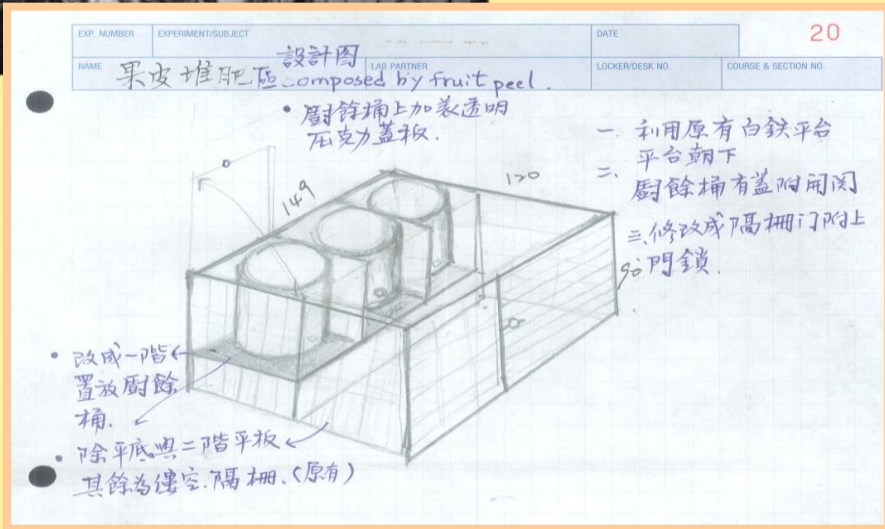 EXP. NUMBER
EXPERIMENT/SUBJECT
DATE
20
NAME
LAB PARTNER
LOCKER/DESK NO.
COURSE & SECTION NO.
設計图
果皮堆肥區 composed by fruit peel.
• 廚餘桶上加裝透明
压克力蓋板.
一 利用原有白鉄平台
二. 平台朝下
廚餘桶有蓋附開関
三.修改成隔柵门附上
門鎖.
149
120
90
• 改成一階
置放廚餘
桶.
• 除平底與二階平板
其餘為缕空.隔柵.(原有)